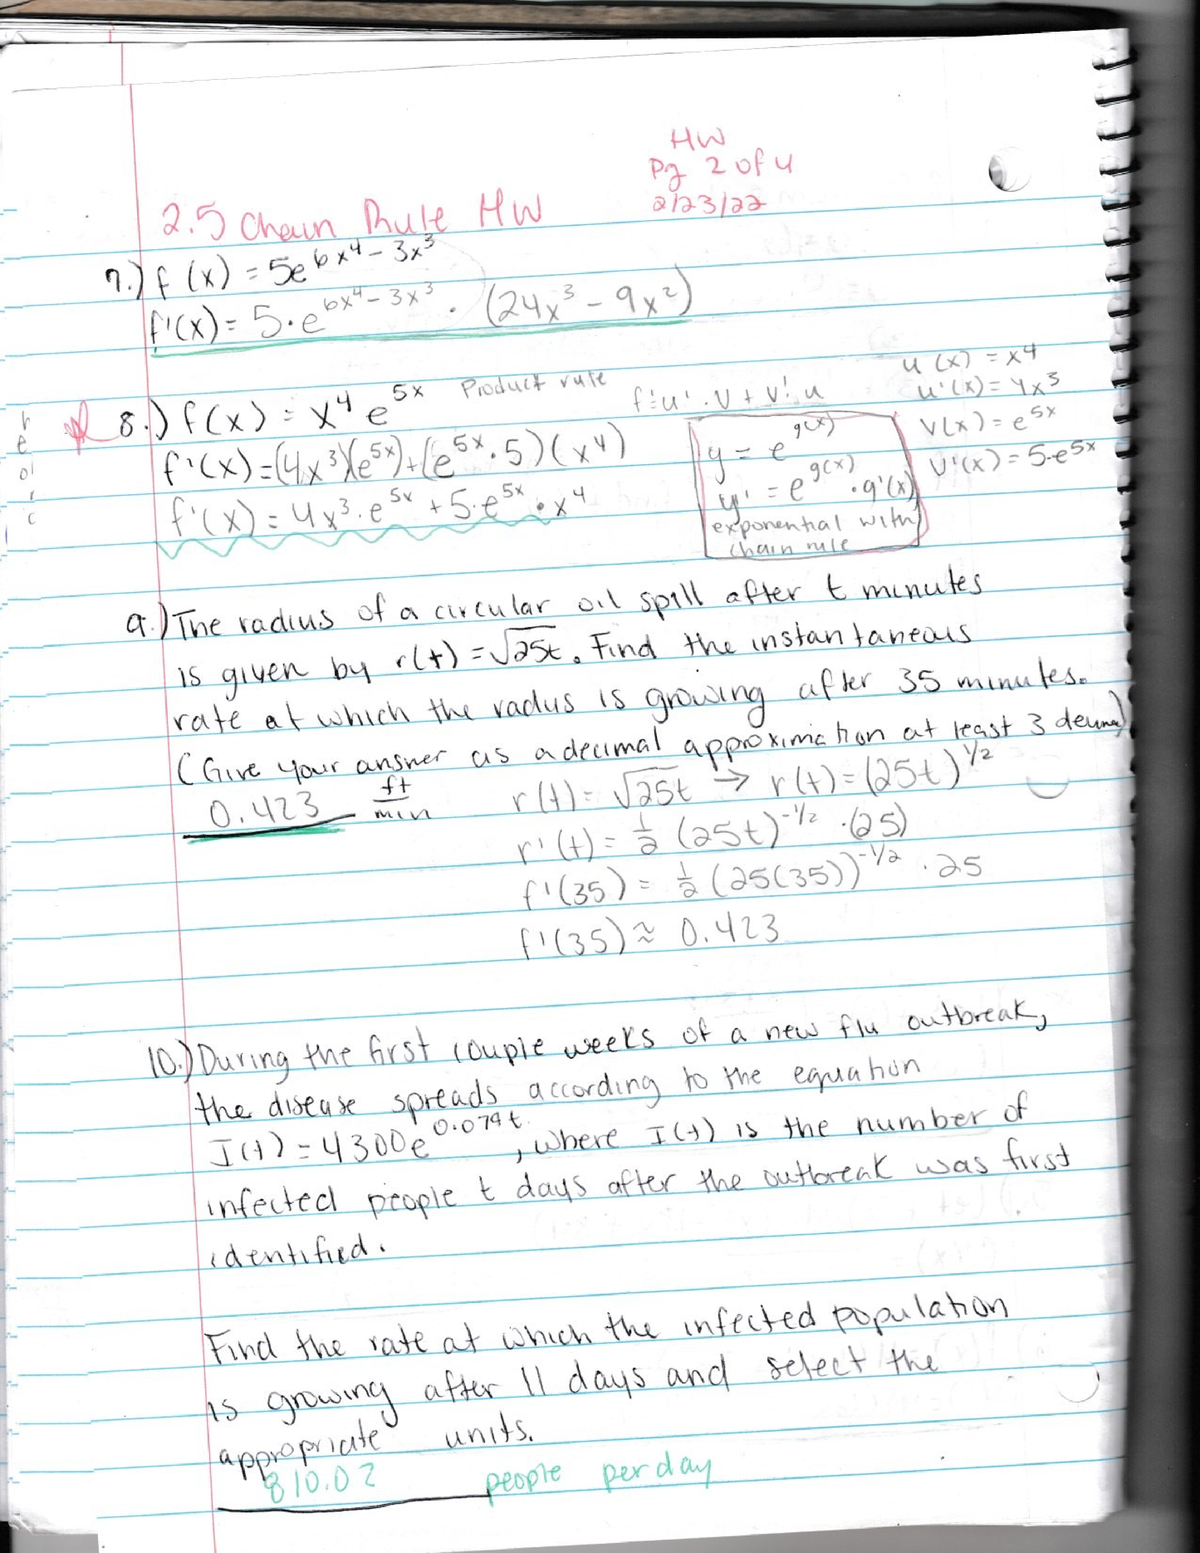 HW
Pg 2 of 4
2/23/22
2.5 Chain Rule HW
7.) f(x) = 5e^{6x^4 - 3x^3}
f'(x) = 5·e^{6x^4 - 3x^3} · (24x^3 - 9x^2)
8.) f(x) = x^4 e^{5x} Product rule
f'(x) = (4x^3)(e^{5x}) + (e^{5x}·5)(x^4)
f'(x) = 4x^3·e^{5x} + 5·e^{5x}·x^4
f'=u'·v + v'·u
y = e^{g(x)}
y' = e^{g(x)}·g'(x)
exponential with
chain rule
u(x) = x^4
u'(x) = 4x^3
v(x) = e^{5x}
v'(x) = 5·e^{5x}
9.) The radius of a circular oil spill after t minutes
is given by r(t) = √25t. Find the instantaneous
rate at which the radus is growing after 35 minutes.
(Give your answer as a decimal approximation at least 3 decimal)
0.423 ft/min
r(t) = √25t → r(t) = (25t)^{1/2}
r'(t) = 1/2 (25t)^{-1/2} ·(25)
f'(35) = 1/2 (25(35))^{-1/2} · 25
f'(35) ≈ 0.423
10.) During the first couple weeks of a new flu outbreak,
the disease spreads according to the equation
I(t) = 4300e^{0.079t}, where I(t) is the number of
infected people t days after the outbreak was first
identified.
Find the rate at which the infected population
is growing after 11 days and select the
appropriate units.
810.02 people per day